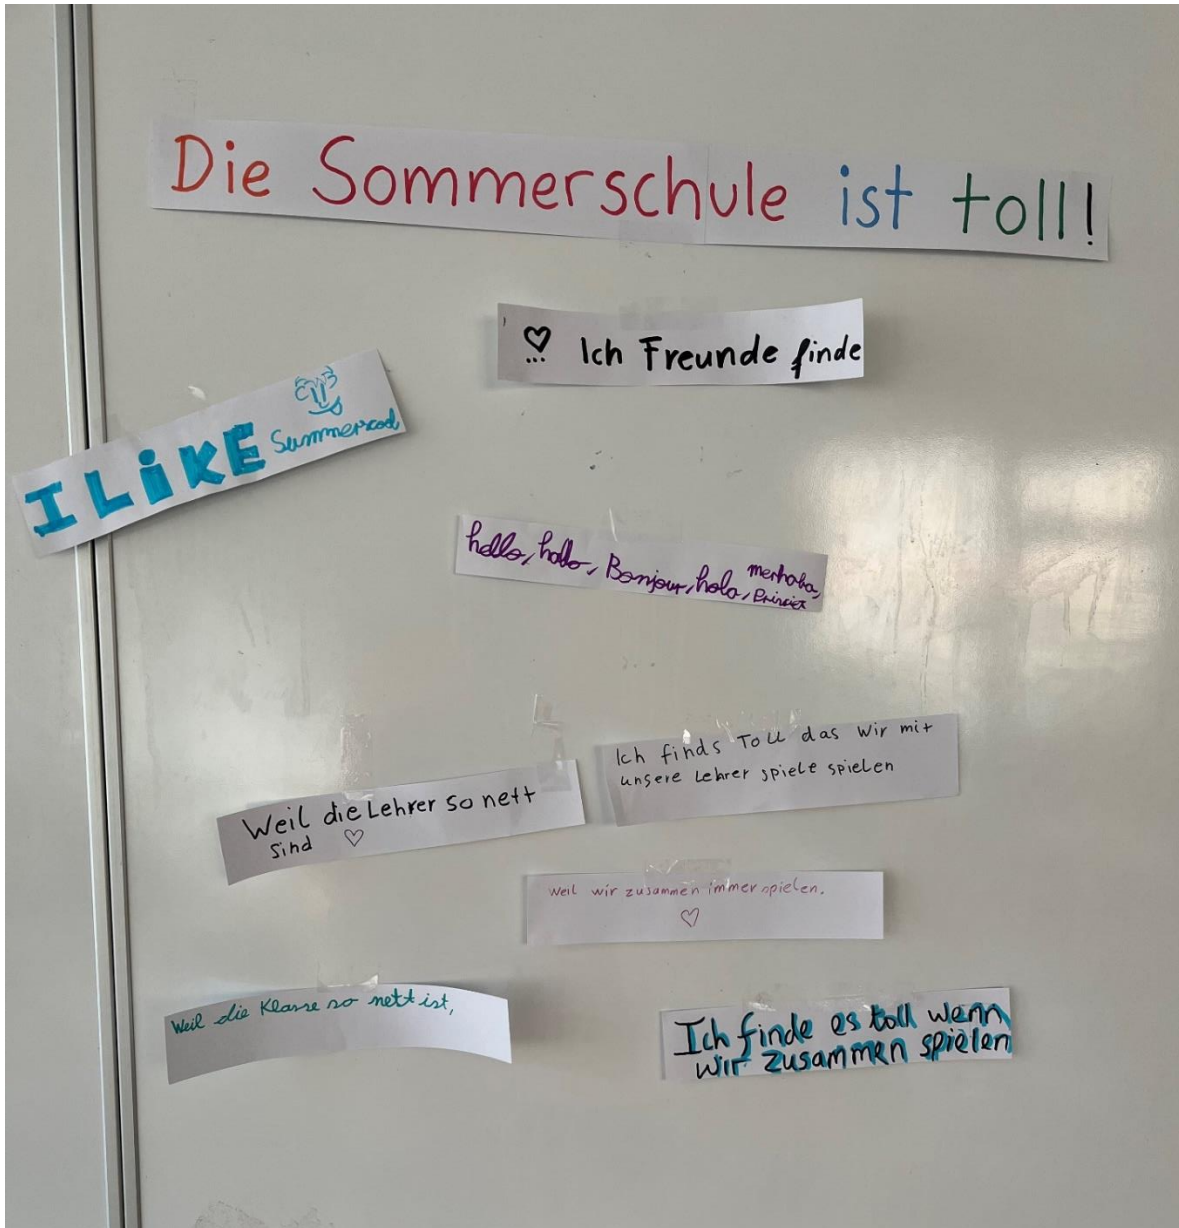 Die Sommerschule ist toll!
Ich Freunde finde
I LiKE Summerscool
hello, hallo, Bonjour, hola, merhaba,
Weil die Lehrer so nett
sind
Ich finds Toll das wir mit
unsere Lehrer spiele spielen
Weil wir zusammen immer spielen.
Weil die Klasse so nett ist,
Ich finde es toll wenn
wir zusammen spielen